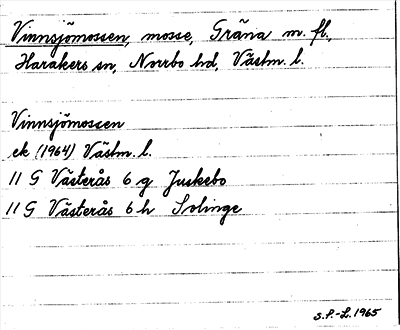 Vinnsjömossen, mosse, Gräna m. fl.,
Harakers sn, Norrbo hd, Västm. l.
Vinnsjömossen
ek (1964) Västm. l.
11 G Västerås 6 g Juskebo
11 G Västerås 6 h Solinge
S.P.-L. 1965